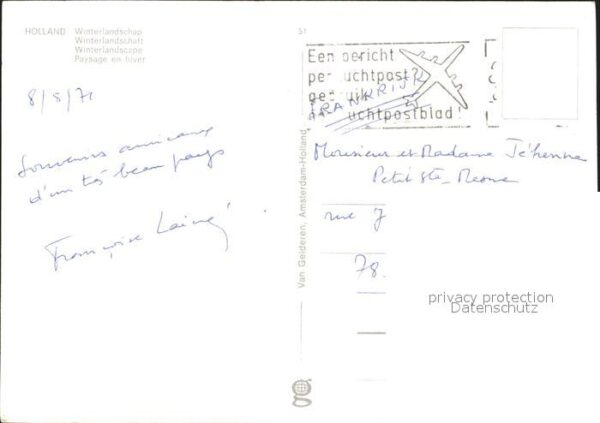 HOLLAND Winterlandschap
Winterlandschaft
Winterlandscape
Paysage en hiver
8/8/71
Souvenirs amicaux
d'un très beau pays
Françoise Lainé
51
Een bericht
per luchtpost?
gebruik
luchtpostblad!
FRANKRIJK
Monsieur et Madame Jéhenne
Petit Ste
rue J
78.
Van Gelderen, Amsterdam-Holland
privacy protection
Datenschutz